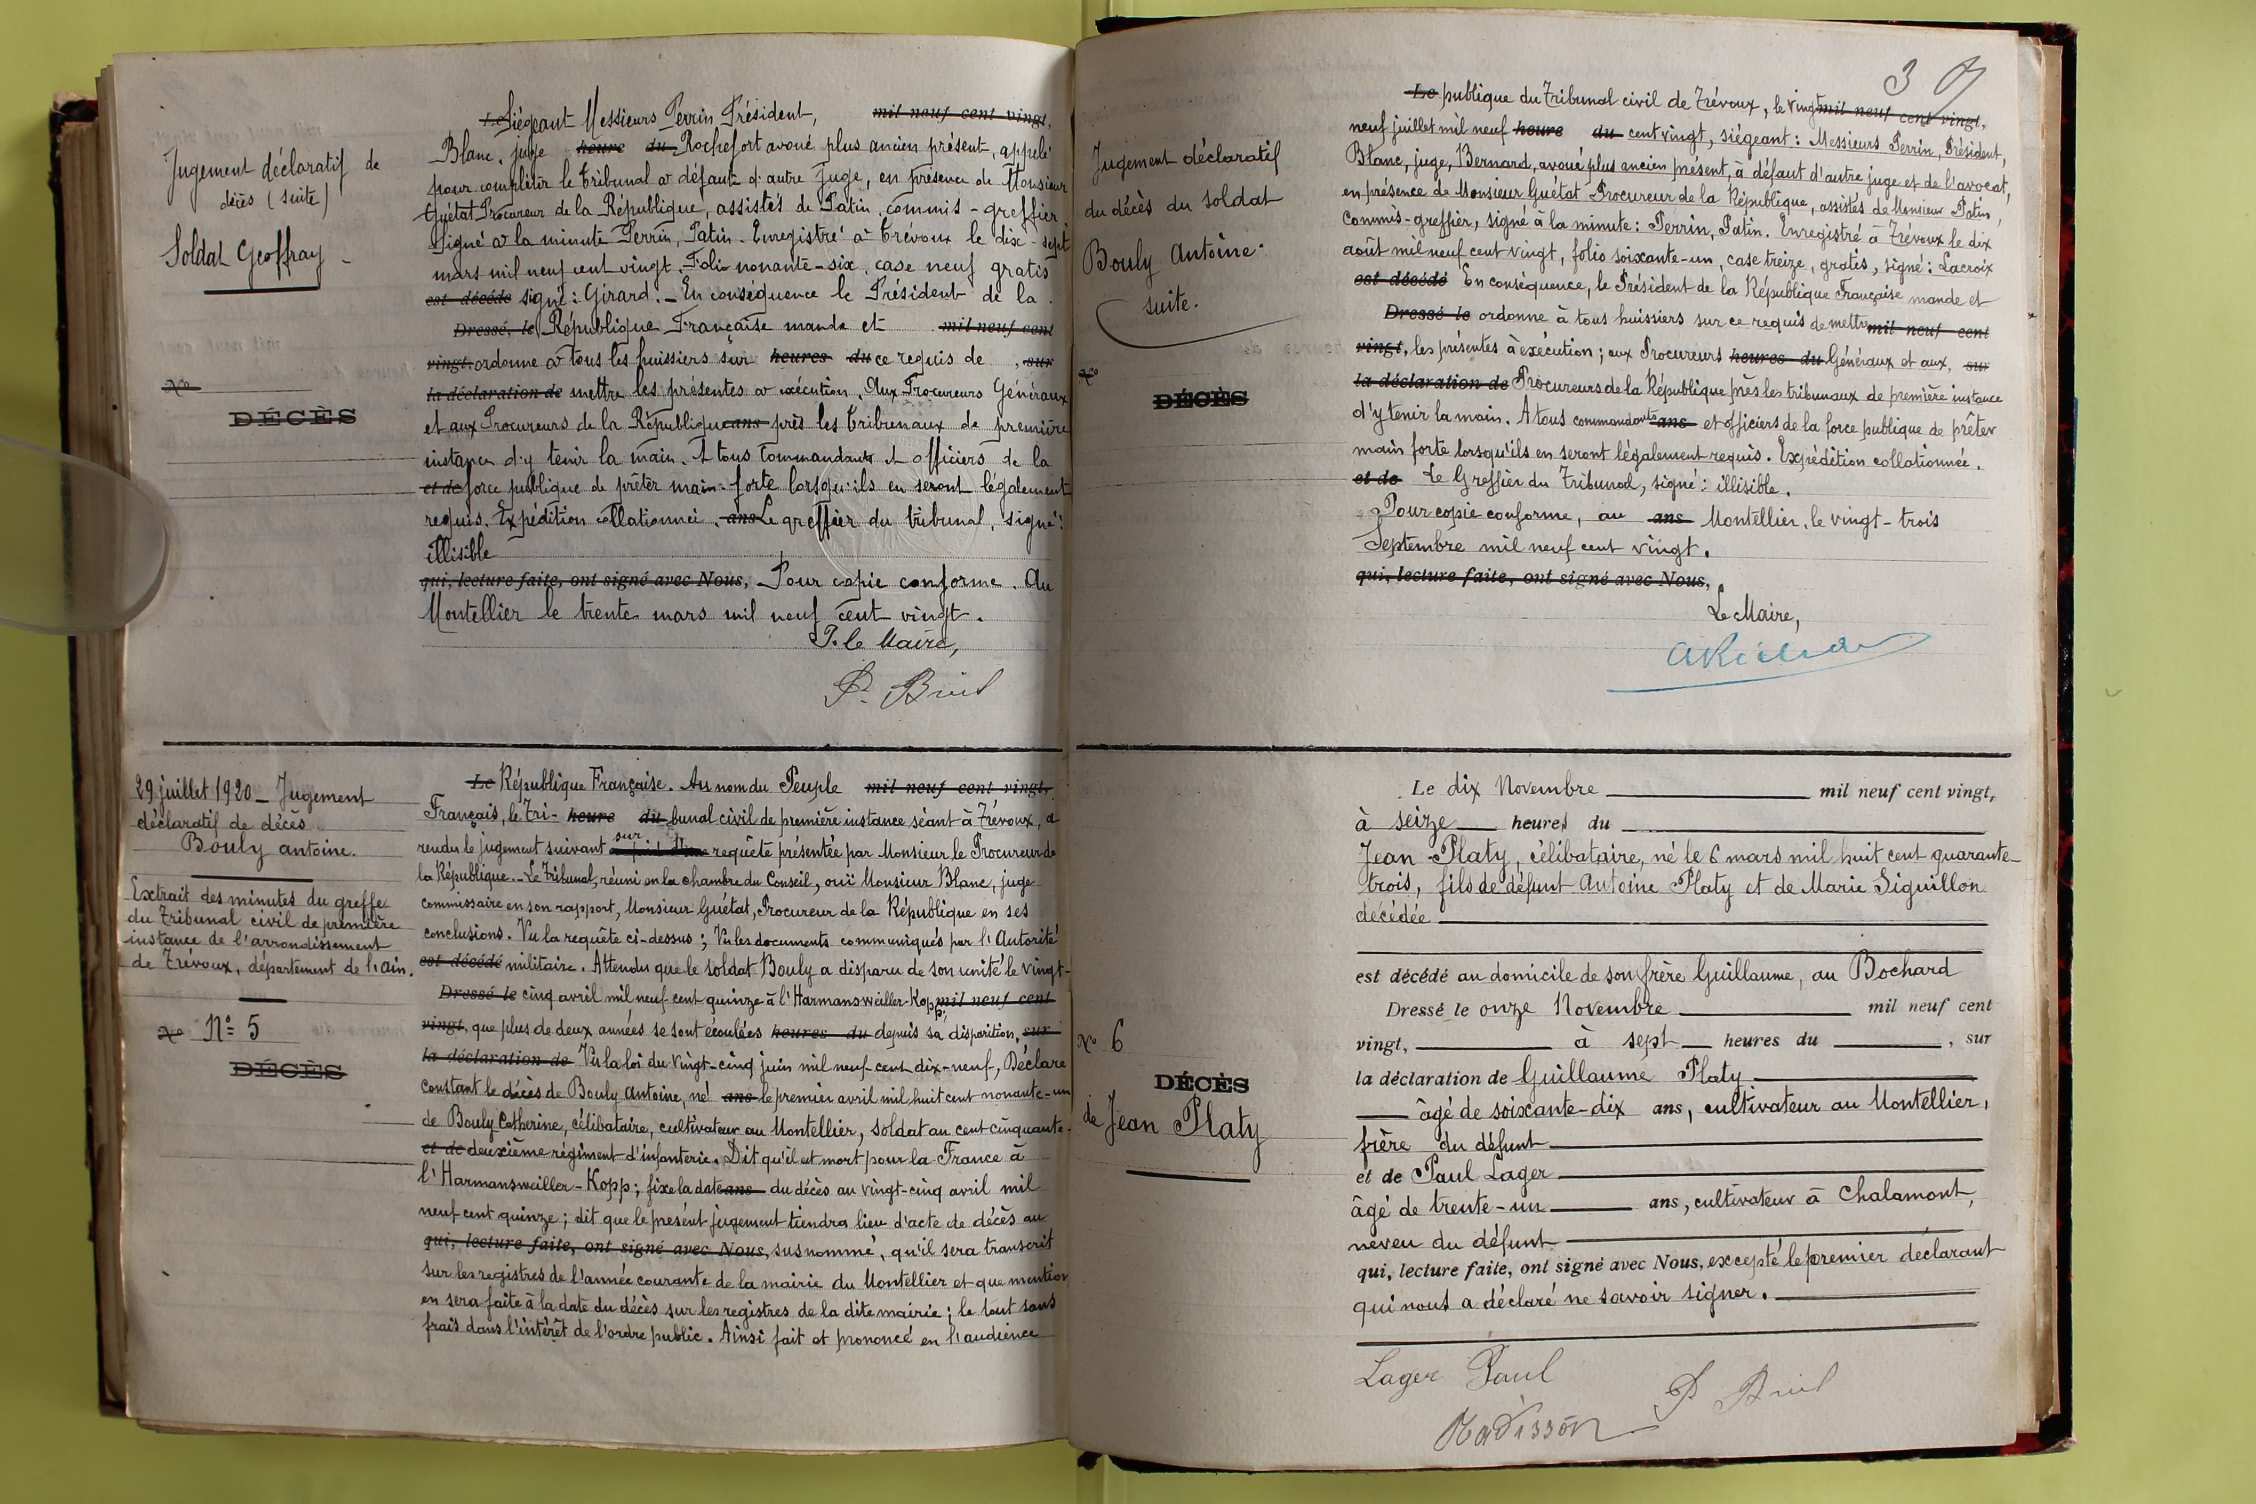 Jugement déclaratif de
décès (suite)
Soldat Geoffray
N°
DÉCÈS
Le Siégeant Messieurs Perrin Président, mil neuf cent vingt,
Blanc, juge heure du Rochefort avoué plus ancien présent, appelé
pour compléter le tribunal à défaut d'autre juge, en présence de Monsieur
Guétat Procureur de la République, assistés de Patin, commis-greffier
Signé à la minute Perrin, Patin. Enregistré à Trévoux le dix-sept
mars mil neuf cent vingt. Folio nonante-six, case neuf gratis
est décédé signé : Girard. _ En conséquence le Président de la
Dressé, le République Française mande et mil neuf cent
vingt ordonne à tous les huissiers sur heures du ce requis de , sur
la déclaration de mettre les présentes à exécution, Aux Procureurs Généraux
et aux Procureurs de la République ans près les tribunaux de première
instance d'y tenir la main. A tous Commandants et officiers de la
et de force publique de prêter main-forte lorsqu'ils en seront légalement
requis. Expédition collationnée. ans Le greffier du tribunal, signé :
illisible
qui, lecture faite, ont signé avec Nous, Pour copie conforme. Au
Montellier le trente mars mil neuf cent vingt.
P. le Maire,
P. Bruel
29 juillet 1920 _ Jugement
déclaratif de décès
Bouly antoine.
Extrait des minutes du greffe
du Tribunal civil de première
instance de l'arrondissement
de Trévoux, département de l'ain.
N° N° 5
DÉCÈS
Le République Française. Au nom du Peuple mil neuf cent vingt,
Français, le Tri- heure du bunal civil de première instance séant à Trévoux, a
rendu le jugement suivant sur requête présentée par Monsieur le Procureur de
la République. _ Le Tribunal, réuni en la chambre du Conseil, ouï Monsieur Blanc, juge
commissaire en son rapport, Monsieur Guétat, Procureur de la République en ses
conclusions. Vu la requête ci-dessus ; Vu les documents communiqués par l'Autorité
est décédé militaire. Attendu que le soldat Bouly a disparu de son unité le vingt-
Dressé le cinq avril mil neuf cent quinze à l'Harmansweiller-Kopp, mil neuf cent
vingt, que plus de deux années se sont écoulées heures du depuis sa disparition, sur
la déclaration de Vu la loi du vingt-cinq juin mil neuf cent dix-neuf, Déclare
constant le décès de Bouly Antoine, né ans le premier avril mil huit cent nonante-un
de Bouly Catherine, célibataire, cultivateur au Montellier, soldat au cent cinquante-
et de deuxième régiment d'infanterie. Dit qu'il est mort pour la France à
l'Harmansweiller-Kopp ; fixe la date ans du décès au vingt-cinq avril mil
neuf cent quinze ; dit que le présent jugement tiendra lieu d'acte de décès au
qui, lecture faite, ont signé avec Nous, susnommé, qu'il sera transcrit
sur les registres de l'année courante de la mairie du Montellier et que mention
en sera faite à la date du décès sur les registres de la dite mairie ; le tout sans
frais dans l'intérêt de l'ordre public. Ainsi fait et prononcé en l'audience
3
Jugement déclaratif
du décès du soldat
Bouly Antoine.
suite.
N°
DÉCÈS
Le publique du Tribunal civil de Trévoux, le vingt mil neuf cent vingt,
neuf juillet mil neuf heure du cent vingt, siégeant : Messieurs Perrin, Président,
Blanc, juge, Bernard, avoué plus ancien présent, à défaut d'autre juge et de l'avocat,
en présence de Monsieur Guétat Procureur de la République, assistés de Monsieur Patin,
Commis-greffier, signé à la minute : Perrin, Patin. Enregistré à Trévoux le dix
août mil neuf cent vingt, folio soixante-un, case treize, gratis, signé : Lacroix
est décédé En conséquence, le Président de la République Française mande et
Dressé le ordonne à tous huissiers sur ce requis de mettre mil neuf cent
vingt, les présentes à exécution ; aux Procureurs heures du Généraux et aux, sur
la déclaration de Procureurs de la République près les tribunaux de première instance
d'y tenir la main. A tous commandants ans et officiers de la force publique de prêter
main forte lorsqu'ils en seront légalement requis. Expédition collationnée.
et de Le Greffier du Tribunal, signé : illisible.
Pour copie conforme, au ans Montellier, le vingt-trois
Septembre mil neuf cent vingt.
qui, lecture faite, ont signé avec Nous,
Le Maire,
N° 6
DÉCÈS
de Jean Platy
Le dix Novembre mil neuf cent vingt,
à seize heures du
Jean Platy, célibataire, né le 6 mars mil huit cent quarante-
trois, fils de défunt Antoine Platy et de Marie Siguillon
décédée
est décédé au domicile de son frère Guillaume, au Bochard
Dressé le onze Novembre mil neuf cent
vingt, à sept heures du , sur
la déclaration de Guillaume Platy
âgé de soixante-dix ans, cultivateur au Montellier,
frère du défunt
et de Paul Lager
âgé de trente-un ans, cultivateur à Chalamont,
neveu du défunt
qui, lecture faite, ont signé avec Nous, excepté le premier déclarant
qui nous a déclaré ne savoir signer.
Lager Paul
P Bruel